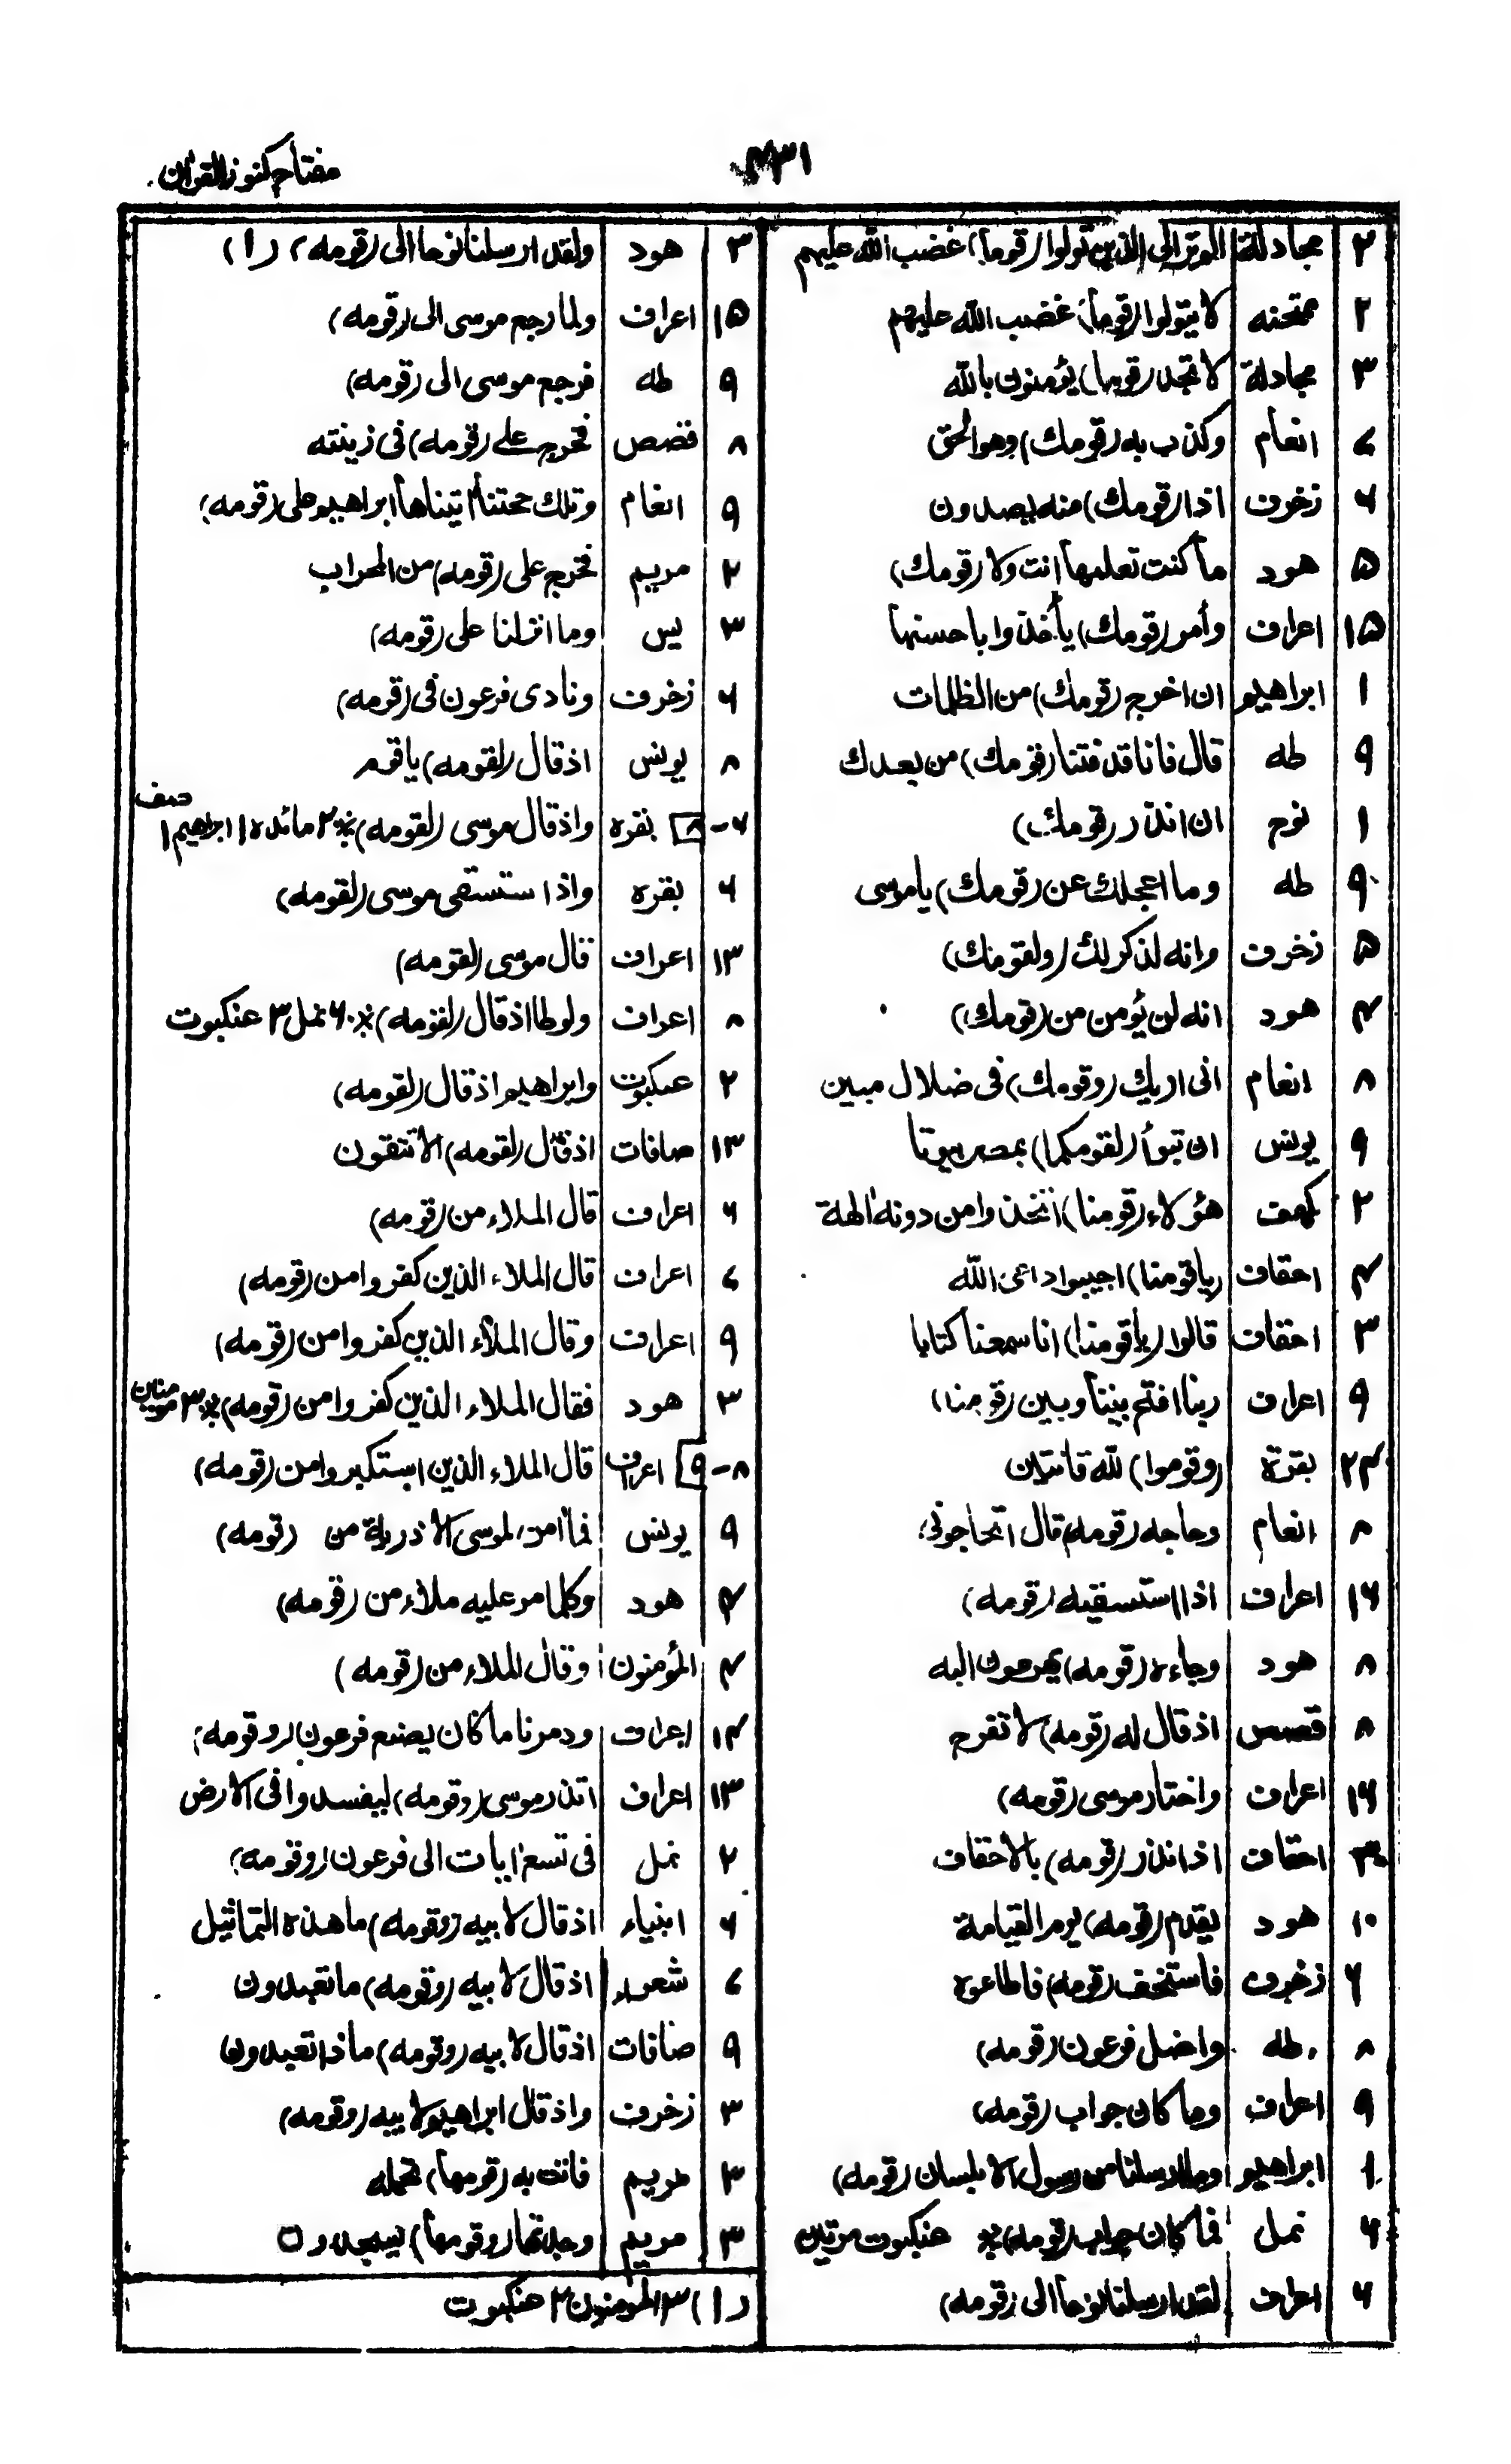 مفتاح كنوز القرآن
۳ مجادلة الم تر الى الذين تولوا (قوما) غضب الله عليهم
۲ ممتحنه لا يتولوا (قوما) غضب الله عليهم
۳ مجادلة لا تجد (قوما) يؤمنون بالله
۷ انعام وكذب به (قومك) وهو الحق
۶ زخرف اذا (قومك) منه يصدون
۵ هود ما كنت تعلمها انت ولا (قومك)
۱۵ اعراف وأمر (قومك) يأخذوا باحسنها
۱ ابراهيم ان اخرج (قومك) من الظلمات
۹ طه قال فانا قد فتنا (قومك) من بعدك
۱ نوح ان انذر (قومك)
۹ طه وما اعجلك عن (قومك) ياموسى
۵ زخرف وانه لذكر لك (ولقومك)
۴ هود انه لن يؤمن من (قومك)
۸ انعام انى اريك (وقومك) فى ضلال مبين
۹ يونس ان تبوأ (لقومكما) بمصر بيوتا
۲ كهف هؤلاء (قومنا) اتخذوا من دونه الهة
۴ احقاف (ياقومنا) اجيبوا داعى الله
۳ احقاف قالوا (ياقومنا) انا سمعنا كتابا
۹ اعراف ربنا افتح بيننا وبين (قومنا)
۲۴ بقرة (وقوموا) لله قانتين
۸ انعام وحاجه (قومه) قال اتحاجونى
۱۶ اعراف اذا استسقيه (قومه)
۸ هود وجاءه (قومه) يهرعون اليه
۸ قصص اذ قال له (قومه) لا تفرح
۱۶ اعراف واختار موسى (قومه)
۳ احقاف اذ انذر (قومه) بالاحقاف
۱۰ هود يقدم (قومه) يوم القيامة
۶ زخرف فاستخف (قومه) فاطاعوه
۸ طه واضل فرعون (قومه)
۹ اعراف وما كان جواب (قومه)
۱ ابراهيم وما ارسلنا من رسول الا بلسان (قومه)
۶ نمل فما كان جواب (قومه)※ عنكبوت مرتين
۶ اعراف لقد ارسلنا نوحا الى (قومه)
۳ هود ولقد ارسلنا نوحا الى (قومه) (۱)
۱۵ اعراف ولما رجع موسى الى (قومه)
۹ طه فرجع موسى الى (قومه)
۸ قصص فخرج على (قومه) فى زينته
۹ انعام وتلك حجتنا اتيناها ابراهيم على (قومه)
۲ مريم فخرج على (قومه) من المحراب
۳ يس وما انزلنا على (قومه)
۶ زخرف ونادى فرعون فى (قومه)
۸ يونس اذ قال (لقومه) ياقوم
۶-۸ بقره واذ قال موسى (لقومه)※ ۴ مائده ۱ ابراهيم ۱ صف
۶ بقره واذ استسقى موسى (لقومه)
۱۳ اعراف قال موسى (لقومه)
۸ اعراف ولوطا اذ قال (لقومه)※ ۶ نمل ۳ عنكبوت
۲ عنكبوت وابراهيم اذ قال (لقومه)
۱۳ صافات اذ قال (لقومه) الا تتقون
۶ اعراف قال الملاء من (قومه)
۷ اعراف قال الملاء الذين كفروا من (قومه)
۹ اعراف وقال الملاء الذين كفروا من (قومه)
۳ هود فقال الملاء الذين كفروا من (قومه)※ ۳ مومنين
۸-۹ اعراف قال الملاء الذين استكبروا من (قومه)
۹ يونس فما امن لموسى الا ذرية من (قومه)
۴ هود وكلما مر عليه ملاء من (قومه)
۴ المؤمنون وقال الملاء من (قومه)
۱۴ اعراف ودمرنا ما كان يصنع فرعون (وقومه)
۱۳ اعراف اتذر موسى (وقومه) ليفسدوا فى الارض
۲ نمل فى تسع ايات الى فرعون (وقومه)
۶ انبياء اذ قال لابيه (وقومه) ما هذه التماثيل
۷ شعراء اذ قال لابيه (وقومه) ما تعبدون
۹ صافات اذ قال لابيه (وقومه) ماذا تعبدون
۳ زخرف واذ قال ابراهيم لابيه (وقومه)
۳ مريم فاتت به (قومها) تحمله
۳ مريم وجدتها (وقومها) يسجدون
(۱) ۳ المومنون ۲ عنكبوت